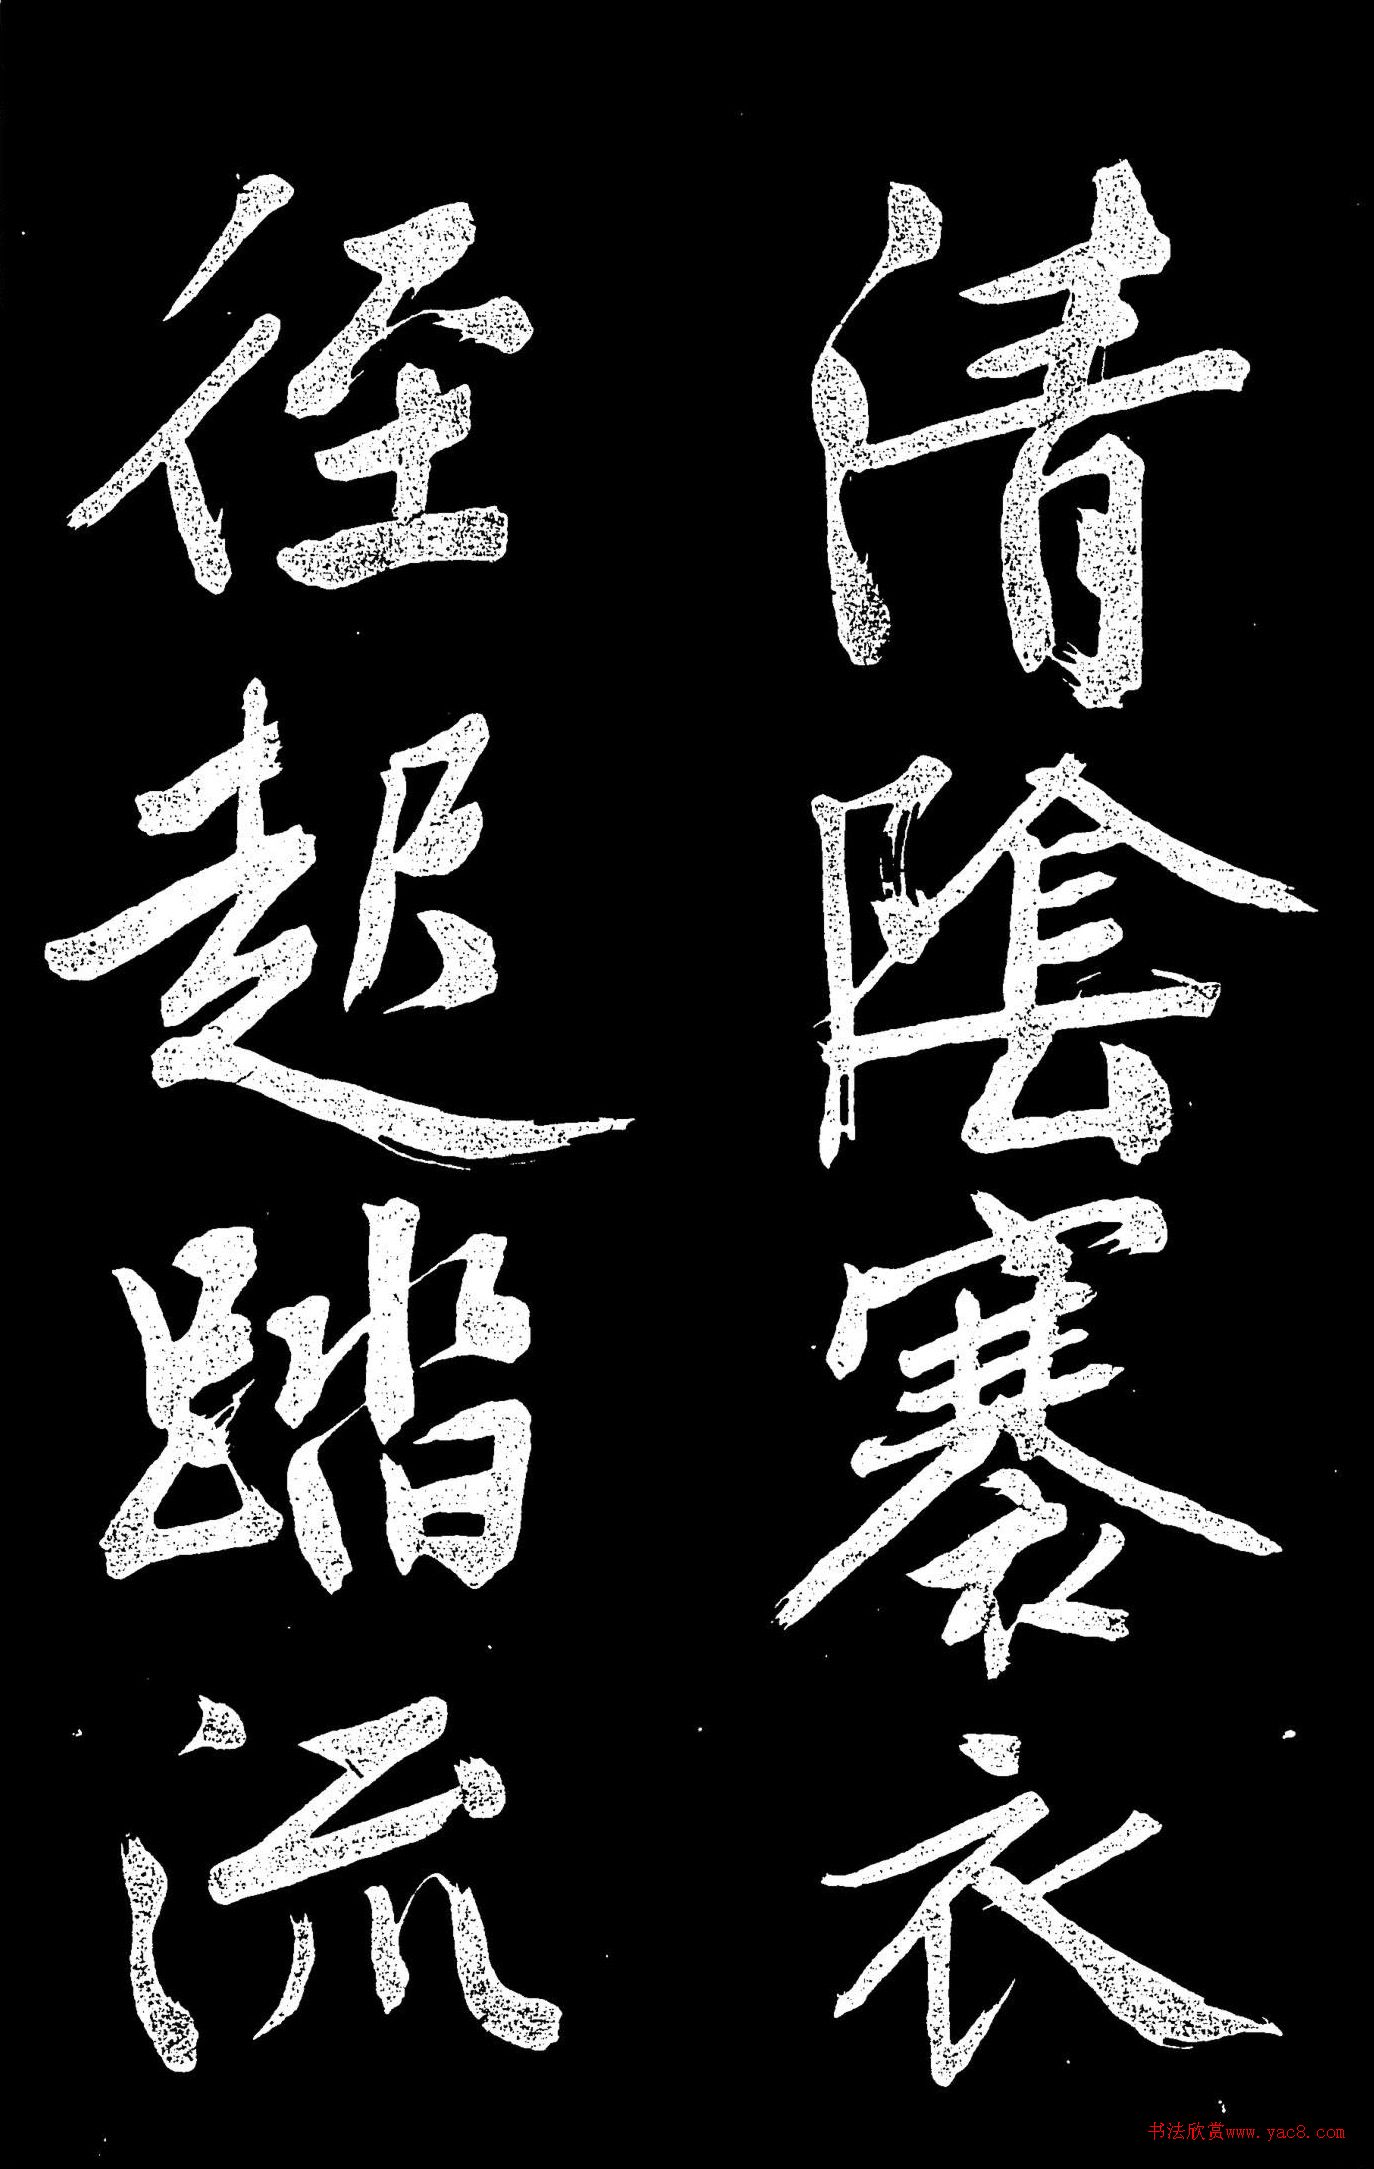 清陰褰衣
径起踏流
书法欣赏www.yac8.com